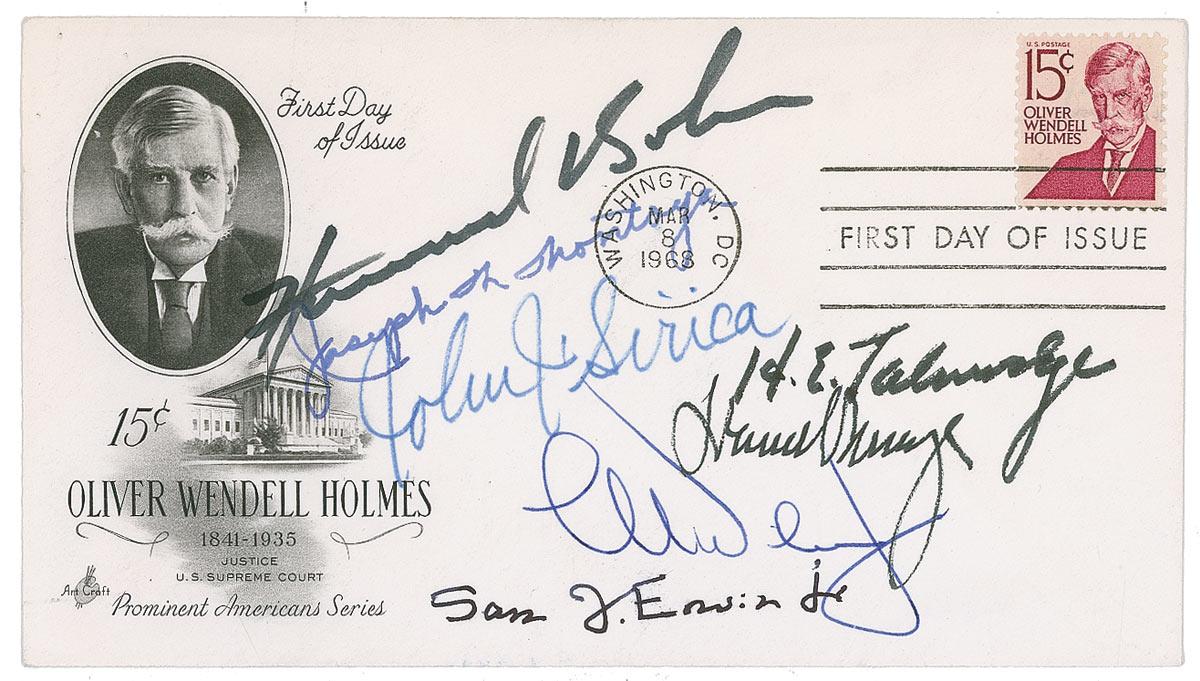 First Day
of Issue
U.S. POSTAGE
15¢
OLIVER
WENDELL
HOLMES
WASHINGTON, DC
MAR
8
1968
FIRST DAY OF ISSUE
Joseph M Montoya
John J. Sirica
H. E. Talmadge
Sam J. Ervin Jr
15¢
OLIVER WENDELL HOLMES
1841-1935
JUSTICE
U.S. SUPREME COURT
Art Craft
Prominent Americans Series